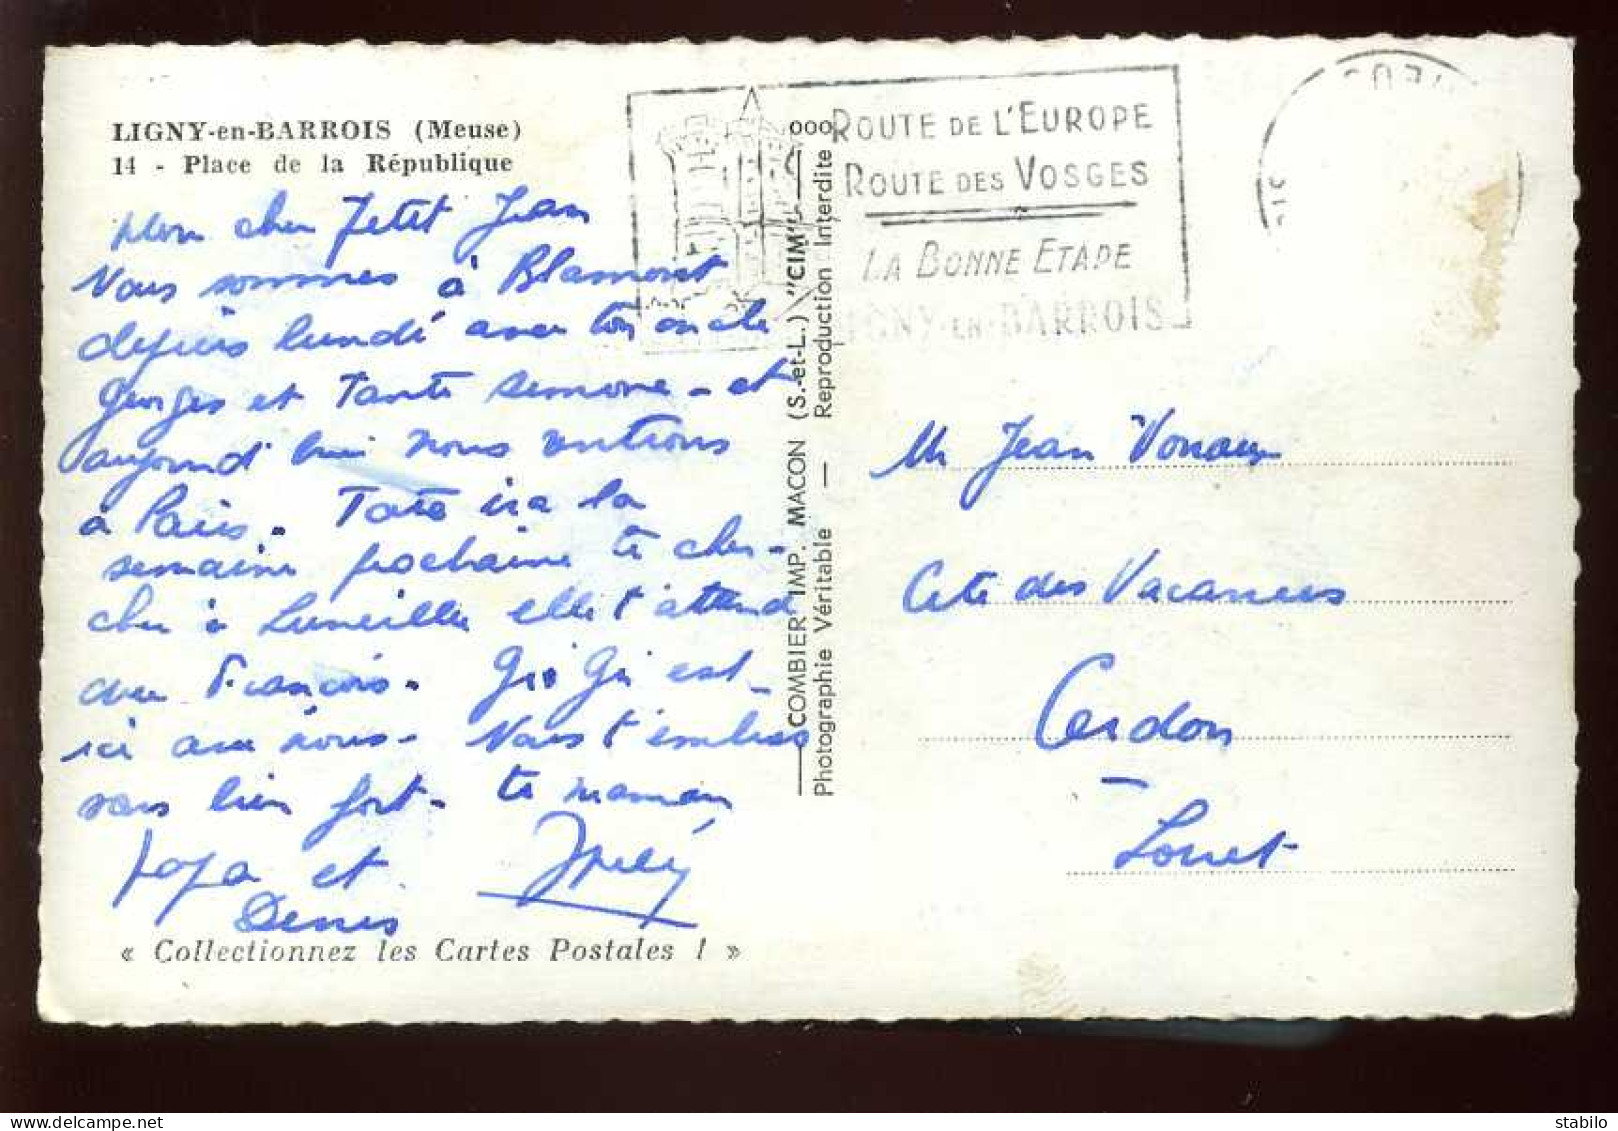 LIGNY-en-BARROIS (Meuse)
14 - Place de la République
Mon cher Petit Jean
Nous sommes à Blamont
depuis lundi avec ton oncle
Georges et Tante Simone - et
aujourd'hui nous rentrons
à Paris. Tata ira la
semaine prochaine te cher-
cher à Luneville elle t'attend
avec François. GiGi est
ici avec nous. Nous t'embras
sons bien fort. ta maman
papa et
Denis
« Collectionnez les Cartes Postales ! »
COMBIER IMP. MACON (S.-et-L.) "CIM"
Photographie Véritable — Reproduction Interdite
ROUTE DE L'EUROPE
ROUTE DES VOSGES
LA BONNE ETAPE
LIGNY-EN-BARROIS
Mr Jean
Cité des Vacances
Cerdon
Loiret
delcampe.net
tonysev